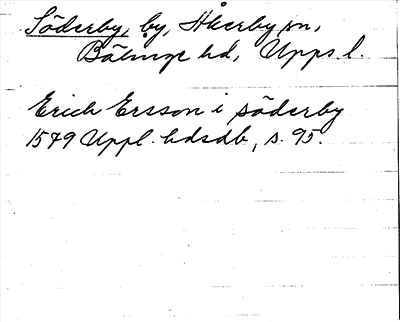 Söderby, by, Åkerby sn,
Bälinge hd, Upps. l.
Erich Ersson i Söderby
1579 Uppl. hdsdb, s. 95.